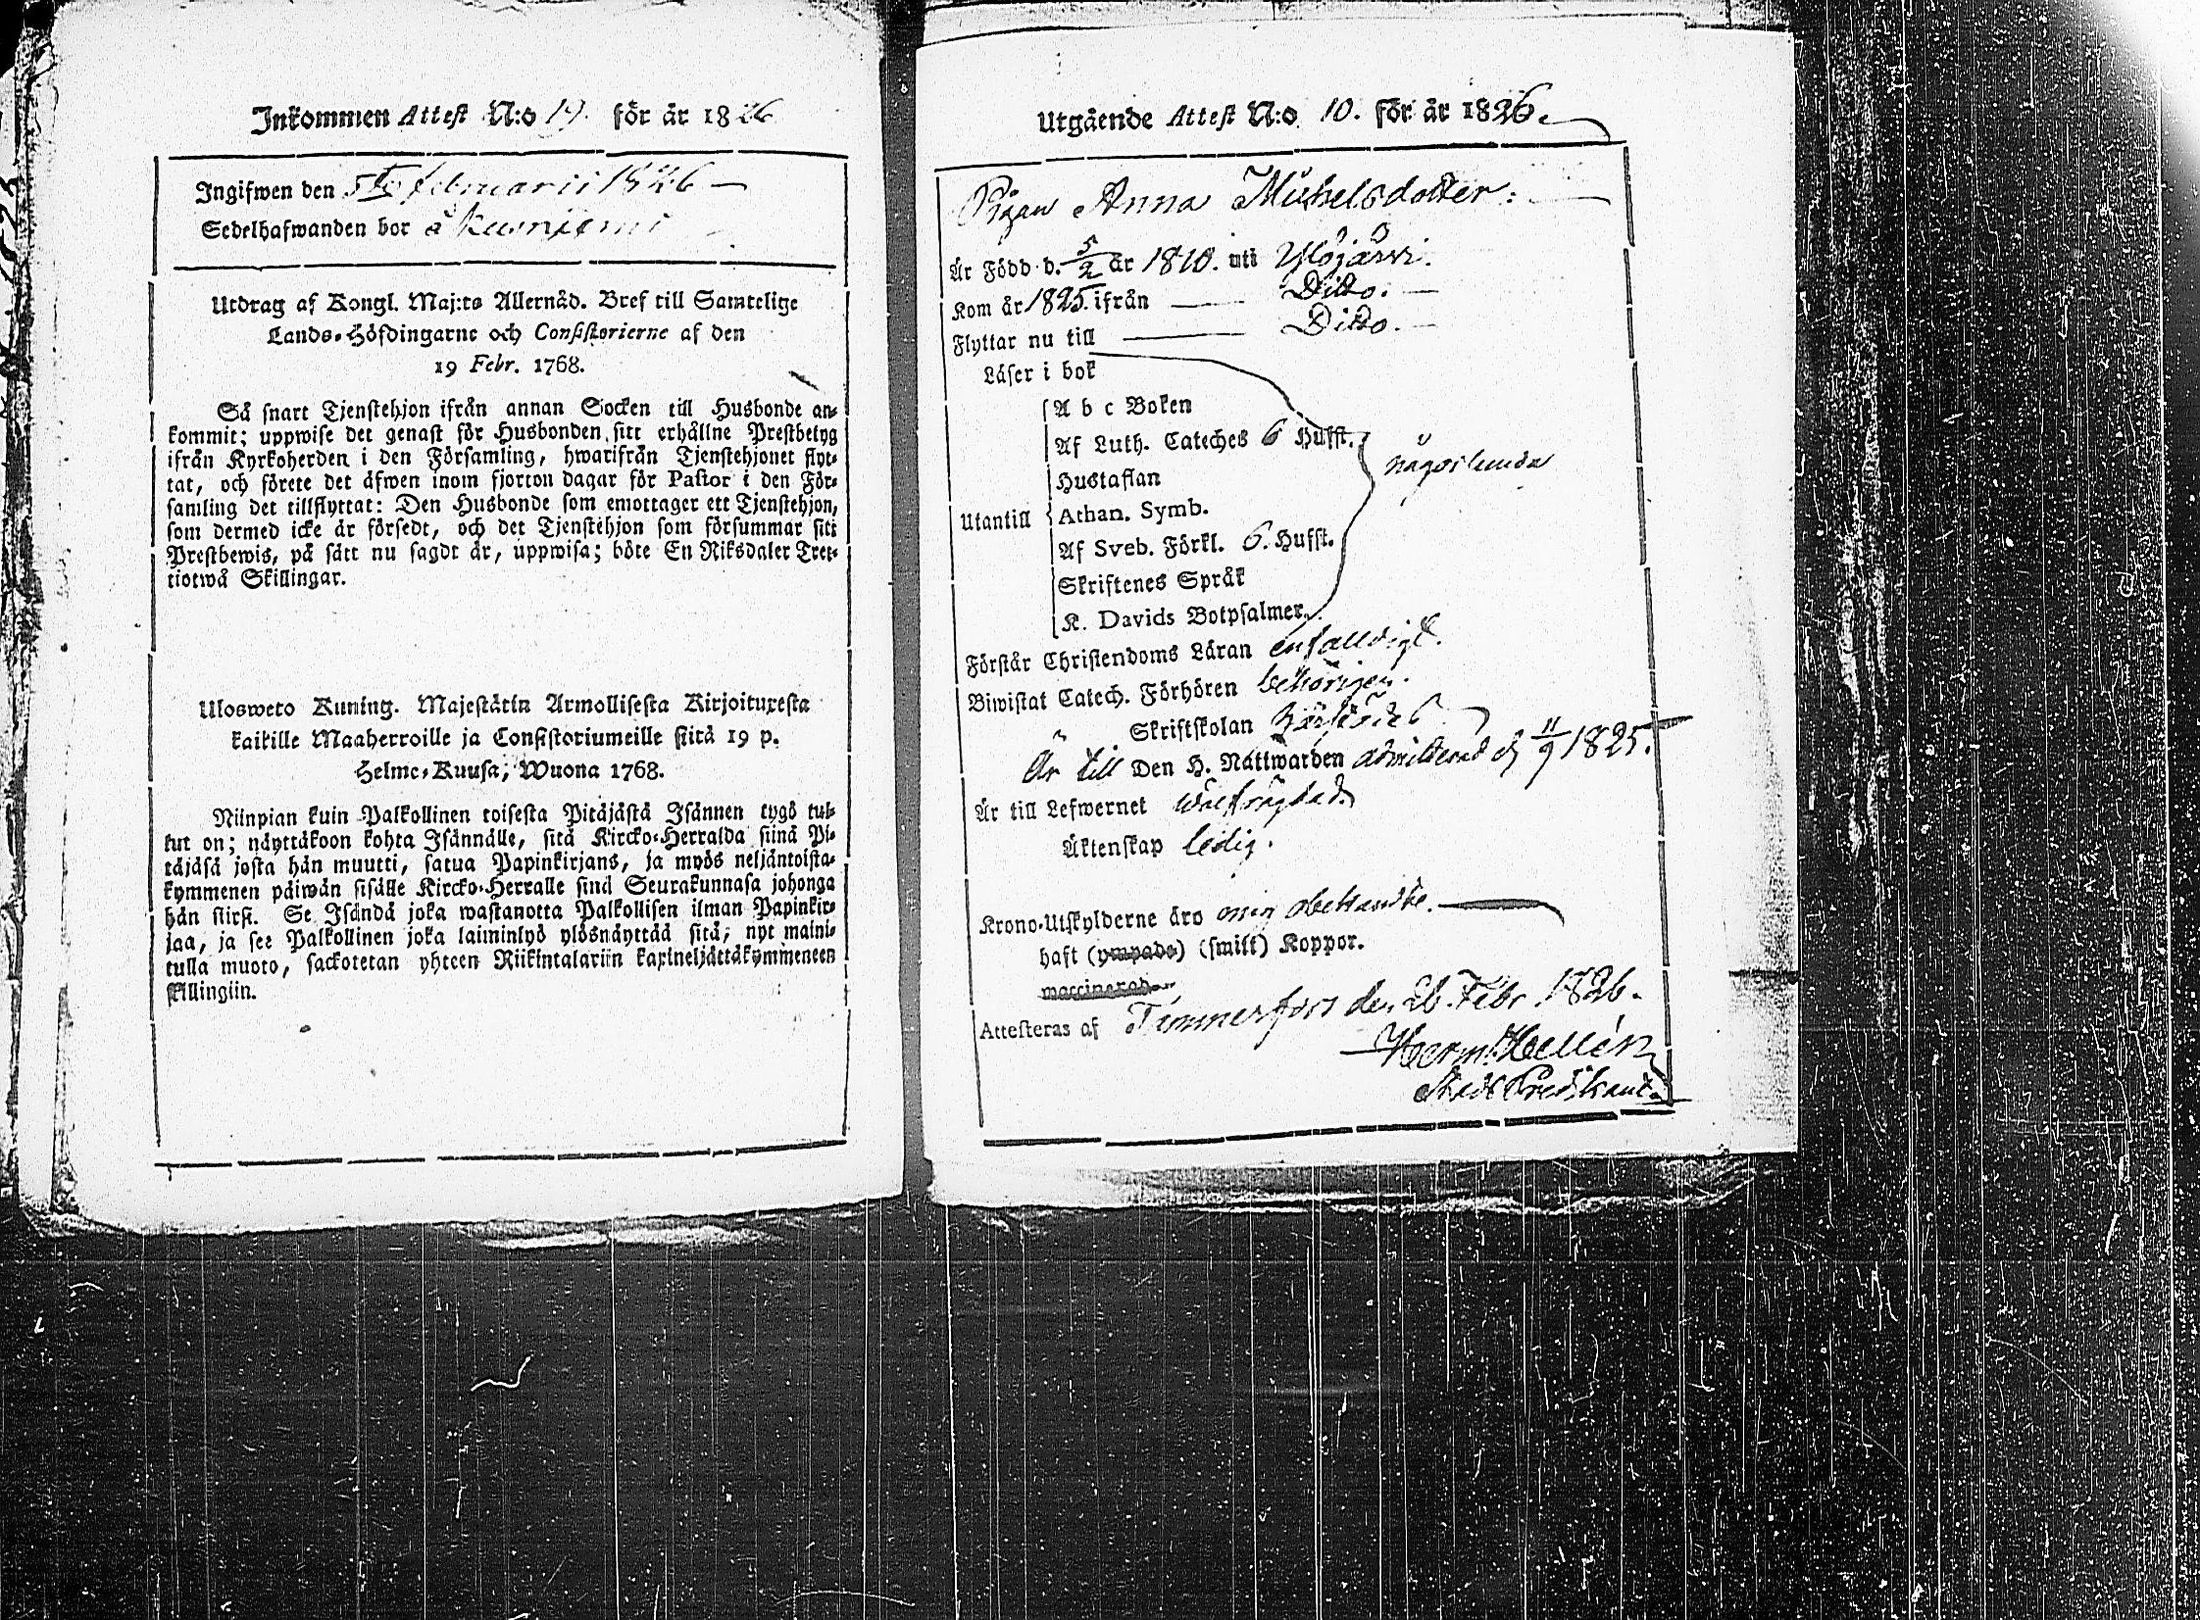 Inkommen Attest N:o 19. för år 1826
Ingifwen den 5te februarii 1826 —
Sedelhafwanden bor å
Utdrag af Kongl. Maj:ts Allernåd. Bref till Samtelige
Lands-Höfdingarne och Consistorierne af den
19 Febr. 1768.
Så snart Tjenstehjon ifrån annan Socken till Husbonde an-
kommit; uppwise det genast för Husbonden sitt erhållne Prestbetyg
ifrån Kyrkoherden i den Församling, hwarifrån Tjenstehjonet flyt-
tat, och förete det äfwen inom fjorton dagar för Pastor i den För-
samling det tillflyttat: Den Husbonde som emottager ett Tjenstehjon,
som dermed icke är försedt, och det Tjenstehjon som försummar sitt
Prestbewis, på sätt nu sagdt är, uppwisa; böte En Riksdaler Tret-
tiotwå Skillingar.
Ulosweto Kuning. Majestätin Armollisesta Kirjoituxesta
kaikille Maaherroille ja Consistoriumeille siitä 19 p.
Helme-Kuusa, Wuona 1768.
Niinpian kuin Palkollinen toisesta Pitäjästä Isännen tygö tul-
lut on; näyttäkoon kohta Isännälle, sitä Kircko-Herralda siinä Pi-
täjäsä josta hän muutti, satua Papinkirjans, ja myös neljäntoista-
kymmenen päiwän sisälle Kircko-Herralle sinä Seurakunnasa johonga
hän siirsi. Se Isändä joka wastanotta Palkollisen ilman Papinkir-
jaa, ja see Palkollinen joka laiminlyö ylösnäyttää sitä, nyt maini-
tulla muoto, sackotetan yhteen Riikintalariin kaxineljättäkymmeneen
skillingiin.
Utgående Attest N:o 10. för år 1826.
Pigan Anna Michelsdotter:
Är Född d. 5/2 år 1810. uti Ylöjärwi.
Kom år 1825. ifrån — Ditto. —
Flyttar nu till — Ditto. —
Läser i bok
A b c Boken
Af Luth. Cateches 6 Hufst.
någorlunda
Hustaflan
Utantill Athan. Symb.
Af Sveb. Förkl. 6. Hufst.
Skriftenes Språk
K. Davids Botpsalmer.
Förstår Christendoms Läran enfalldigt.
Biwistat Catech. Förhören behörigen.
Skriftskolan
Är till Den H. Nattwarden admitterad d 11/9 1825.
Är till Lefwernet wälfrägdad
Äktenskap ledig.
Krono-Utskylderne äro mig obekandte.
haft (ympade) (smitt) Koppor.
waccinerad
Attesteras af Tammerfors den 26. Febr. 1826.
Herm. Hellén
Stads Predikant.